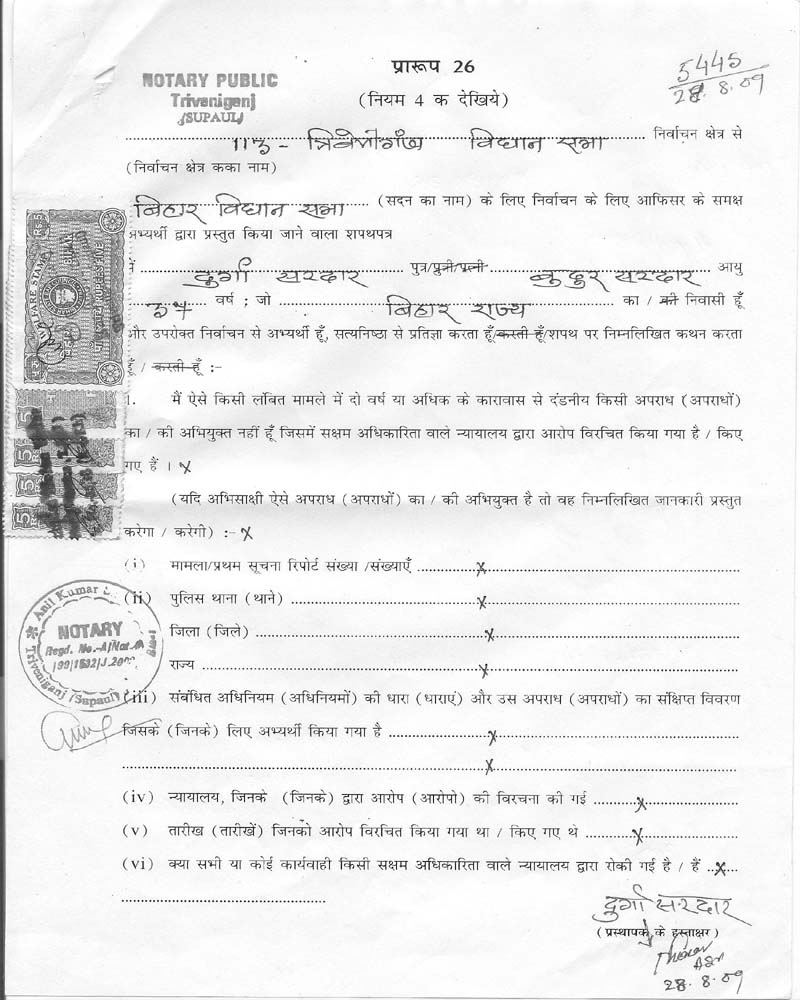 प्रारूप 26
5445
28.8.09
NOTARY PUBLIC
Triveniganj
(SUPAUL)
(नियम 4 क देखिये)
113 - त्रिवेणीगंज विधान सभा निर्वाचन क्षेत्र से
(निर्वाचन क्षेत्र कका नाम)
बिहार विधान सभा (सदन का नाम) के लिए निर्वाचन के लिए आफिसर के समक्ष
अभ्यर्थी द्वारा प्रस्तुत किया जाने वाला शपथपत्र
मैं दुर्गा सरदार पुत्र/पुत्री/पत्नी कुदुर सरदार आयु
37 वर्ष ; जो बिहार राज्य का / की निवासी हूँ
और उपरोक्त निर्वाचन से अभ्यर्थी हूँ, सत्यनिष्ठा से प्रतिज्ञा करता हूँ/करती हूँ/शपथ पर निम्नलिखित कथन करता
हूँ / करती हूँ :-
1. मैं ऐसे किसी लंबित मामले में दो वर्ष या अधिक के कारावास से दंडनीय किसी अपराध (अपराधों)
का / की अभियुक्त नहीं हूँ जिसमें सक्षम अधिकारिता वाले न्यायालय द्वारा आरोप विरचित किया गया है / किए
गए हैं । x
(यदि अभिसाक्षी ऐसे अपराध (अपराधों) का / की अभियुक्त है तो वह निम्नलिखित जानकारी प्रस्तुत
करेगा / करेगी) :- x
(i) मामला/प्रथम सूचना रिपोर्ट संख्या /संख्याएँ x
(ii) पुलिस थाना (थाने) x
जिला (जिले) x
राज्य x
Anil Kumar
NOTARY
Regd. No.-A/Not.
Triveniganj (Supaul)
(iii) संबंधित अधिनियम (अधिनियमों) की धारा (धाराएं) और उस अपराध (अपराधों) का संक्षिप्त विवरण
जिसके (जिनके) लिए अभ्यर्थी किया गया है x
x
(iv) न्यायालय, जिनके (जिनके) द्वारा आरोप (आरोपो) की विरचना की गई x
(v) तारीख (तारीखें) जिनको आरोप विरचित किया गया था / किए गए थे x
(vi) क्या सभी या कोई कार्यवाही किसी सक्षम अधिकारिता वाले न्यायालय द्वारा रोकी गई है / हैं x
दुर्गा सरदार
(प्रस्थापक के हस्ताक्षर)
28.8.09